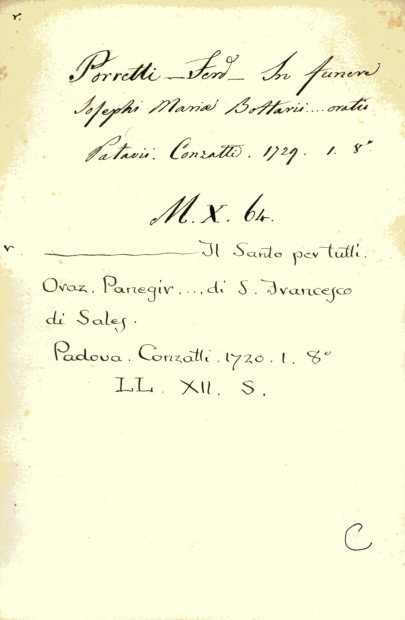 r.
Porretti _ Ferd _ In funere
Josephi Mariæ Bottarii.... oratio
Patavii. Conzatti. 1729. 1. 8°
M. X. 64.
r ———— Il Santo per tutti.
Oraz. Panegir.... di S. Francesco
di Sales.
Padova. Conzatti. 1720. 1. 8°
LL. XII. S.
C